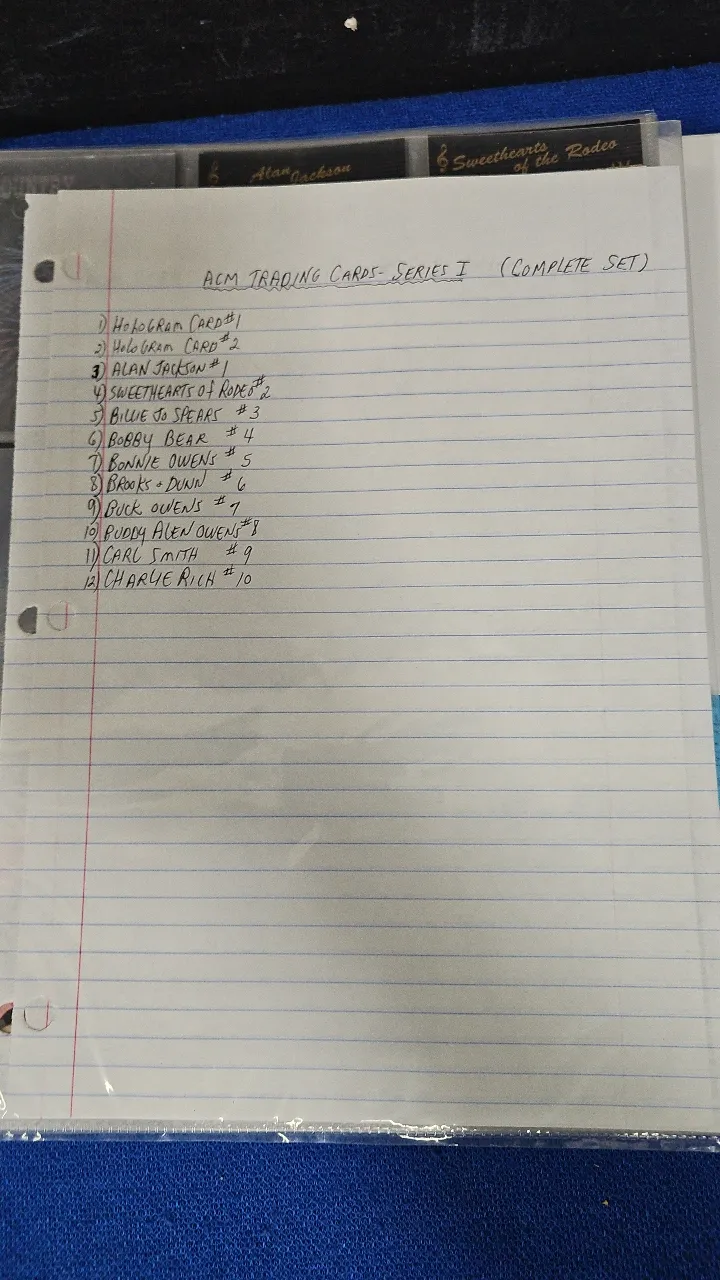 OUNTRY
Alan
Jackson
Sweethearts
of the Rodeo
ACM TRADING CARDS- SERIES I (COMPLETE SET)
1) HOLOGRAM CARD #1
2) HOLOGRAM CARD #2
3) ALAN JACKSON #1
4) SWEETHEARTS Of RODEO #2
5) BILLIE JO SPEARS #3
6) BOBBY BEAR #4
7) BONNIE OWENS #5
8) BROOKS + DUNN #6
9) BUCK OWENS #7
10) BUDDY ALEN OWENS #8
11) CARL SMITH #9
12) CHARLIE RICH #10